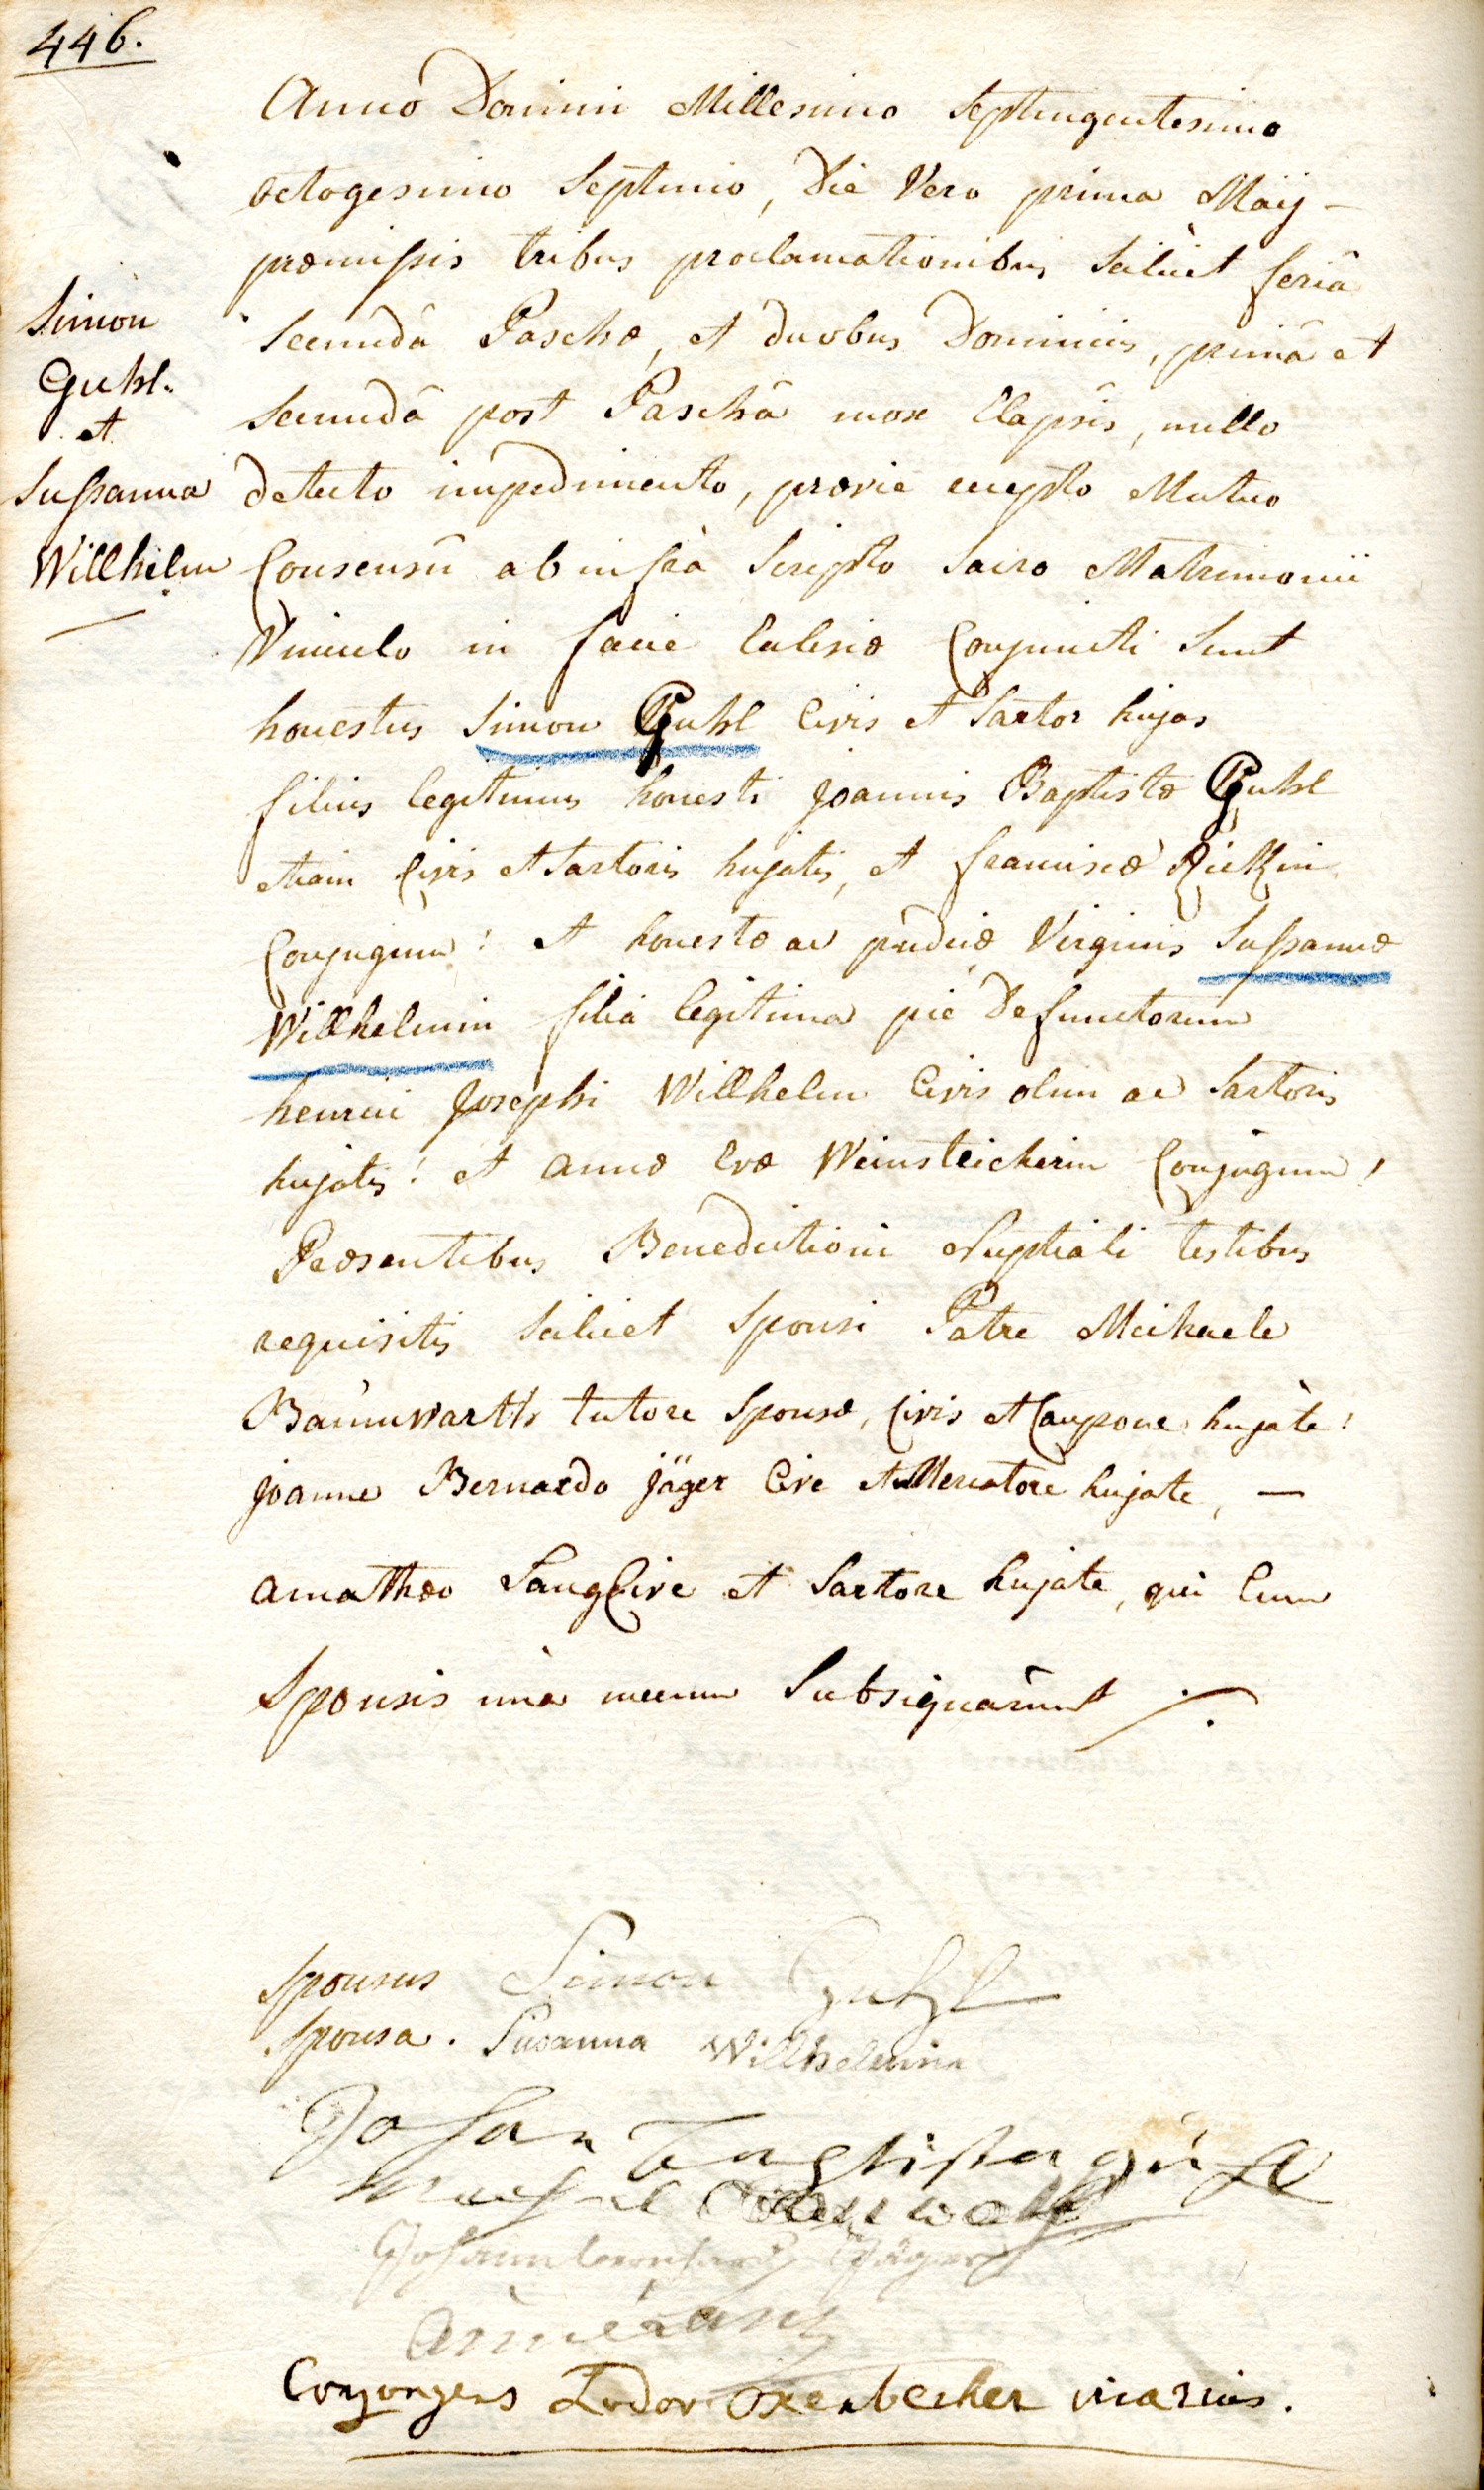 446.
Anno Domini Millesimo Septingentesimo
octogesimo Septimo, Die Vero prima Maÿ –
præmissis tribus proclamationibus Scilicet feriâ
Secundâ Paschæ, et duobus Dominicis, primâ et
Secundâ post Pascha mox Elapsis, nullo
detecto impedimento, prævie recepto Mutuo
Consensu ab infrà Scripto Sacro Matrimonii
Vinculo in facie Eclesiæ Conjuncti Sunt
honestus Simon Guhl Civis et Sartor hujas
filius legitimus honesti Joannis Baptistæ Guhl
etiam Civis et Sartoris hujatis, et franciscæ
Conjugum: et honestæ ac pudicæ Virginis Sussannæ
Willhelmin filia legitima piè Defunctorum
henrici Josephi Willhelm Civis olim ac Sartoris
hujatis! et annæ Evæ Weinsteicherin Conjugum,
Præsentibus Benedictioni Nuptiali testibus
requisitis Scilicet Sponsi Patre Michaele
Bannwarth tutore Sponsæ, Civis et Caupone hujate!
Joanne Bernardo Jäger Cive et Mercatore hujate, –
amathæo Lang Cive et Sartore hujate, qui Cum
Sponsis una mecum Subsignârunt
Simon
Guhl.
et
Sussanna
Willhelm
Sponsus Simon Guhl
Sponsa. Susanna Willhelmin
Johan Baptista
Jäger
Conjungens Oxenbecher vicarius.